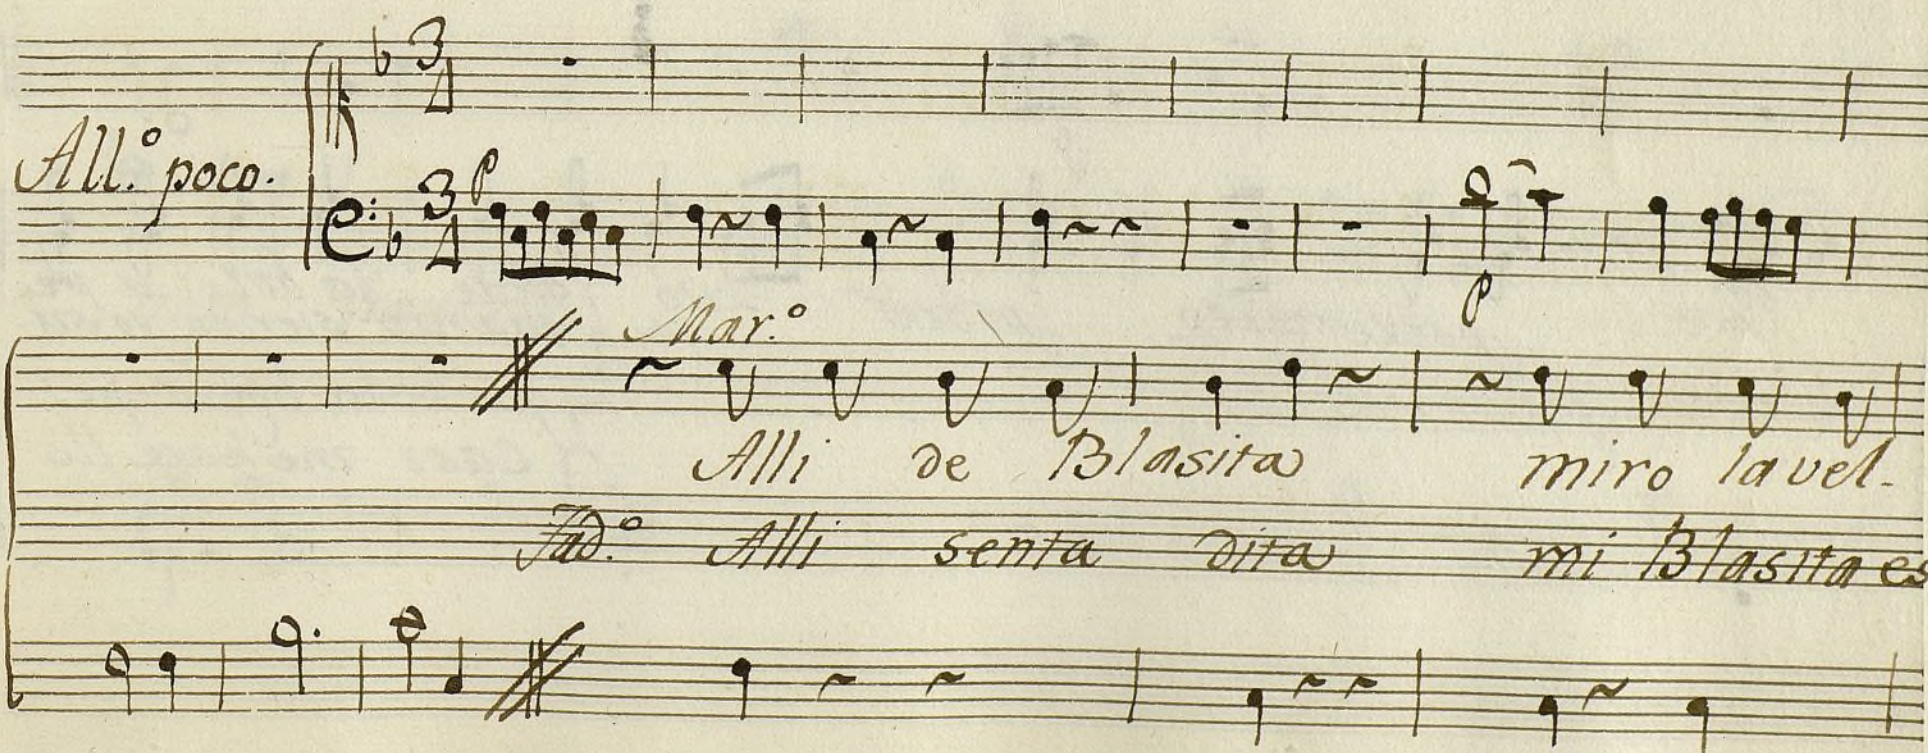 All.º poco.
p
p
Mar.º
Alli de Blasita miro la vel-
Tad.º Alli senta dita mi Blasita es